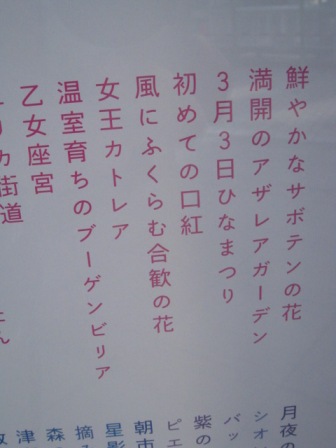 鮮やかなサボテンの花
満開のアザレアガーデン
3月3日ひなまつり
初めての口紅
風にふくらむ合歓の花
女王カトレア
温室育ちのブーゲンビリア
乙女座宮
カ街道
月夜の
シオ
バッ
紫の
ピエ
朝市
星影
摘み
森の
津